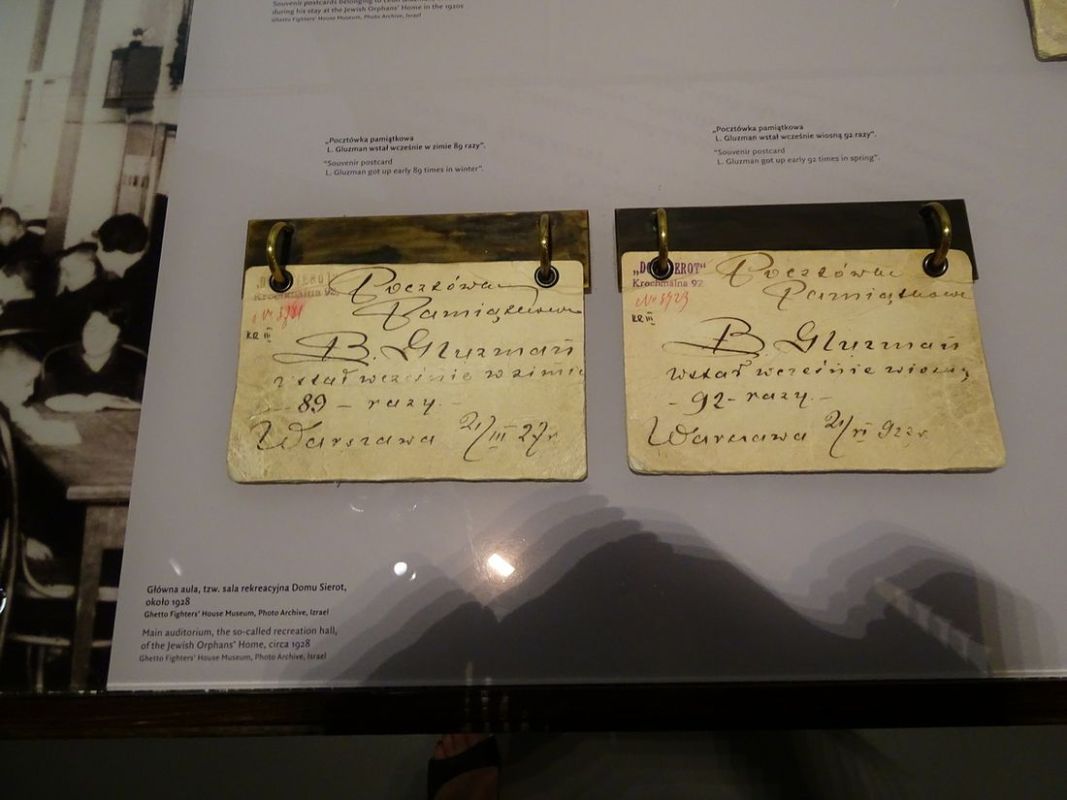 Souvenir postcards belonging to
during his stay at the Jewish Orphans' Home in the 1920s
Ghetto Fighters' House Museum, Photo Archive, Israel
„Pocztówka pamiątkowa
L. Gluzman wstał wcześnie w zimie 89 razy”.
“Souvenir postcard
L. Gluzman got up early 89 times in winter”.
„Pocztówka pamiątkowa
L. Gluzman wstał wcześnie wiosną 92 razy”.
“Souvenir postcard
L. Gluzman got up early 92 times in spring”.
Krochmalna 92
Pocztówka
Pamiątkowa
KR III
B. Gluzman
wstał wcześnie w zimie
- 89 - razy. -
Warszawa 21/III 27 r
Krochmalna 92
Pocztówka
Pamiątkowa
KR III
B. Gluzman
wstał wcześnie wiosną
- 92 - razy. -
Warszawa 21/VI
Główna aula, tzw. sala rekreacyjna Domu Sierot,
około 1928
Ghetto Fighters' House Museum, Photo Archive, Izrael
Main auditorium, the so-called recreation hall,
of the Jewish Orphans' Home, circa 1928
Ghetto Fighters' House Museum, Photo Archive, Israel